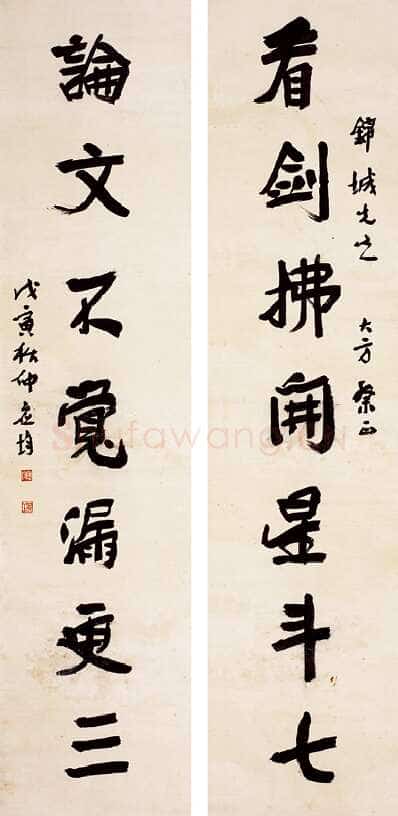 看劍拂開星斗七
錦城先生 大方 正
論文不覺漏更三
戊寅秋仲
Shufawang.CN